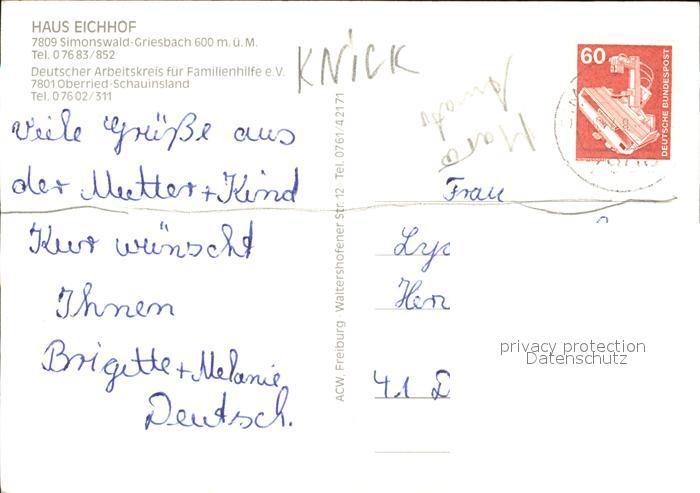 HAUS EICHHOF
7809 Simonswald-Griesbach 600 m. ü. M.
Tel. 0 76 83/852
Deutscher Arbeitskreis für Familienhilfe e.V.
7801 Oberried-Schauinsland
Tel. 0 76 02/311
KNICK
60
DEUTSCHE BUNDESPOST
Viele Grüße aus
der Mutter + Kind
Kur wünscht
Ihnen
Brigitte + Melanie
Deutsch.
ACW. Freiburg · Waltershofener Str. 12 · Tel. 0761/42171
Frau
privacy protection
Datenschutz